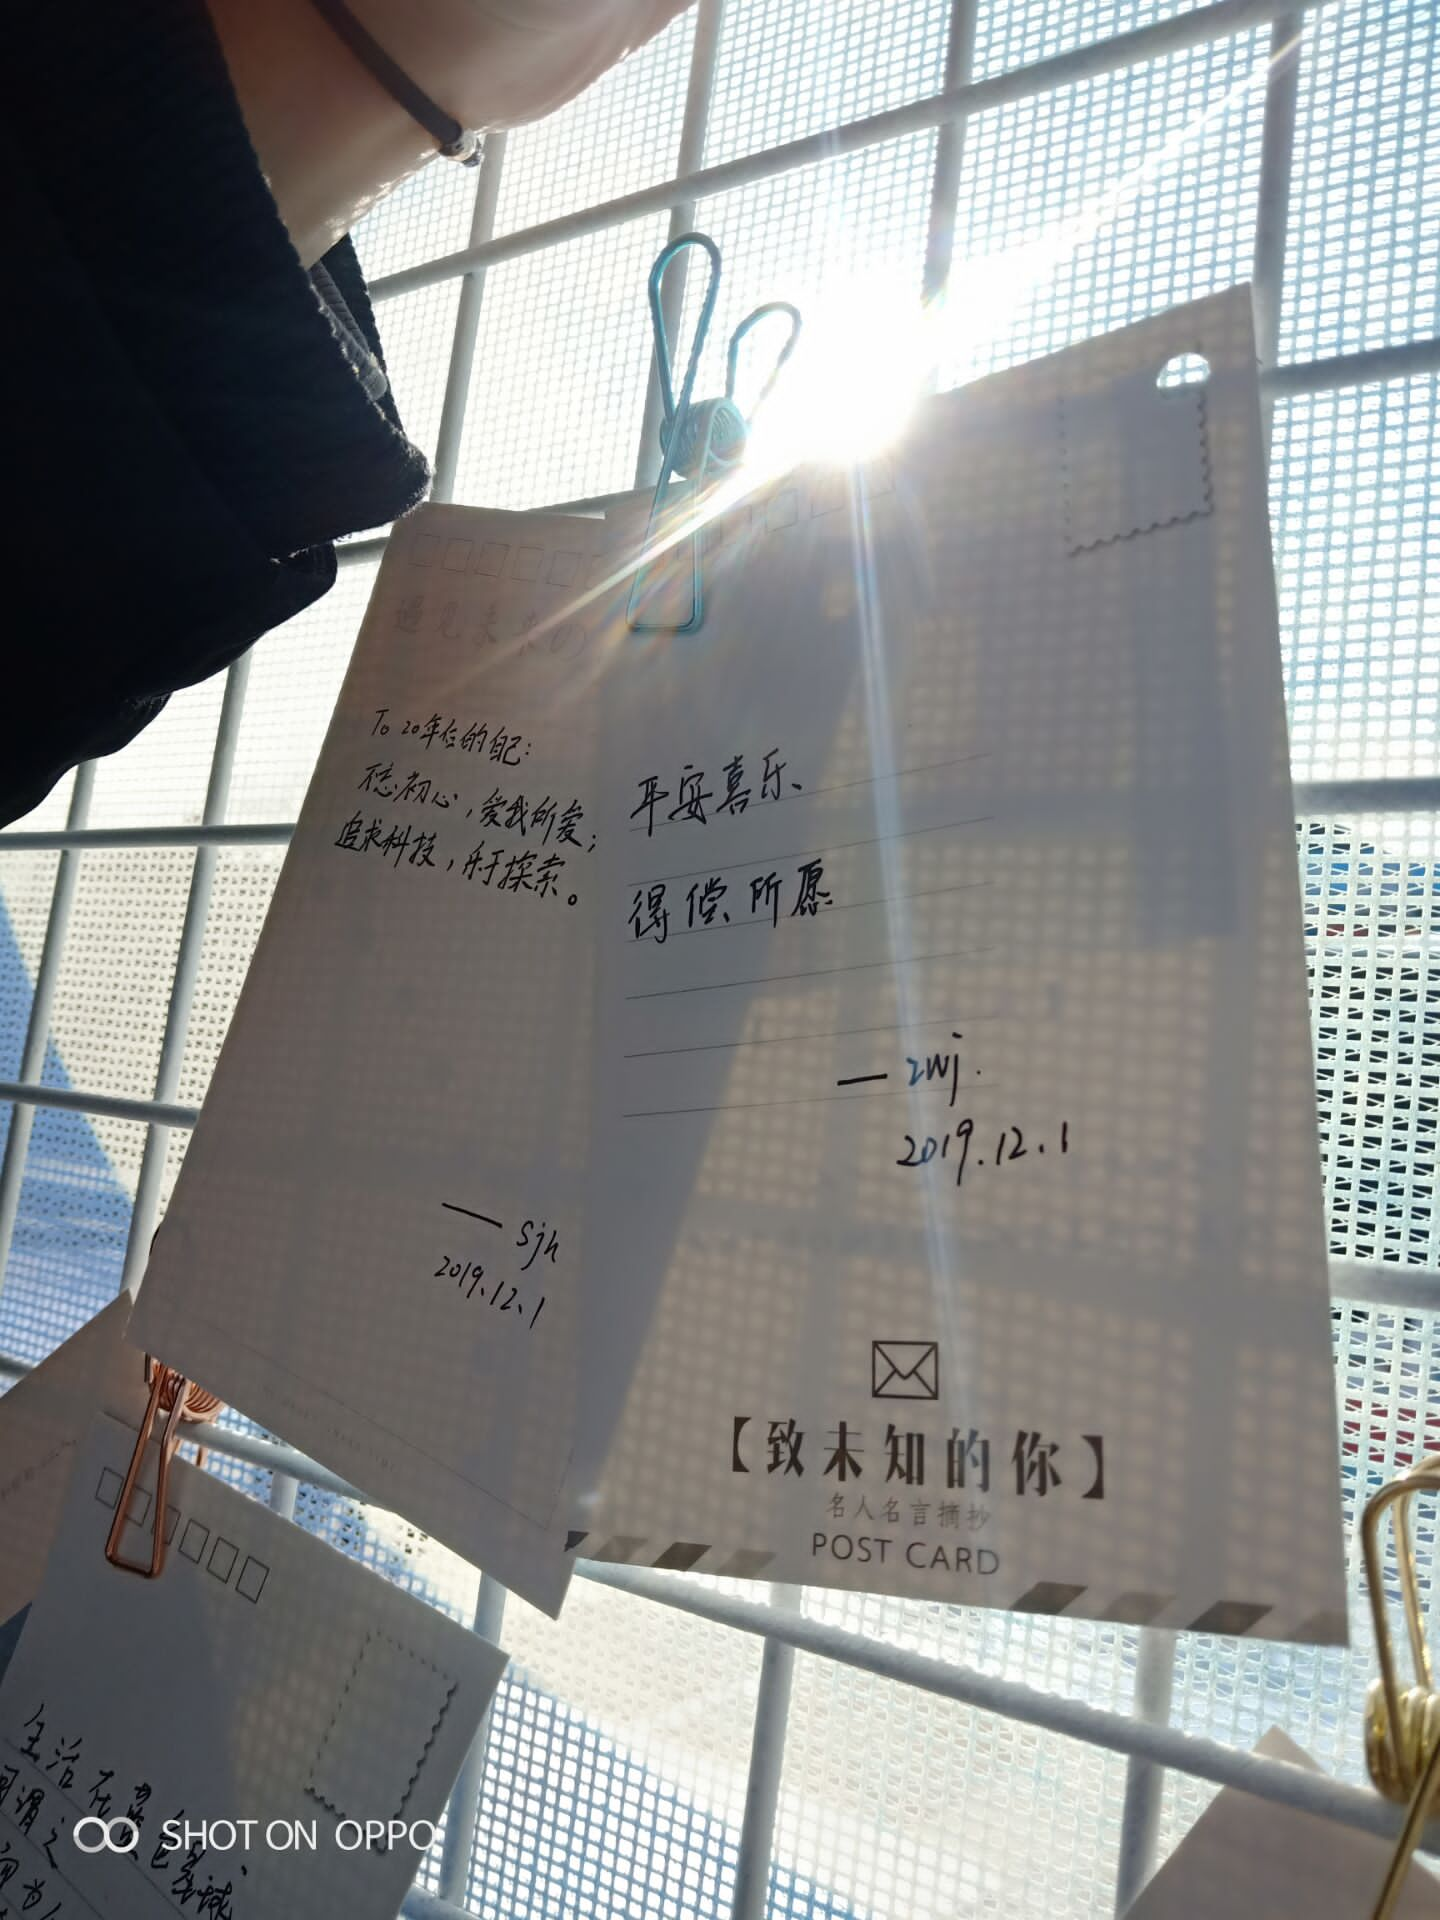 遇见未来の
To 20年后的自己：
不忘初心，爱我所爱；
追求科技，乐于探索。
—— sjh
2019.12.1
平安喜乐
得偿所愿
— zwj.
2019.12.1
【致未知的你】
名人名言摘抄
POST CARD
生活在蓝色星球
SHOT ON OPPO